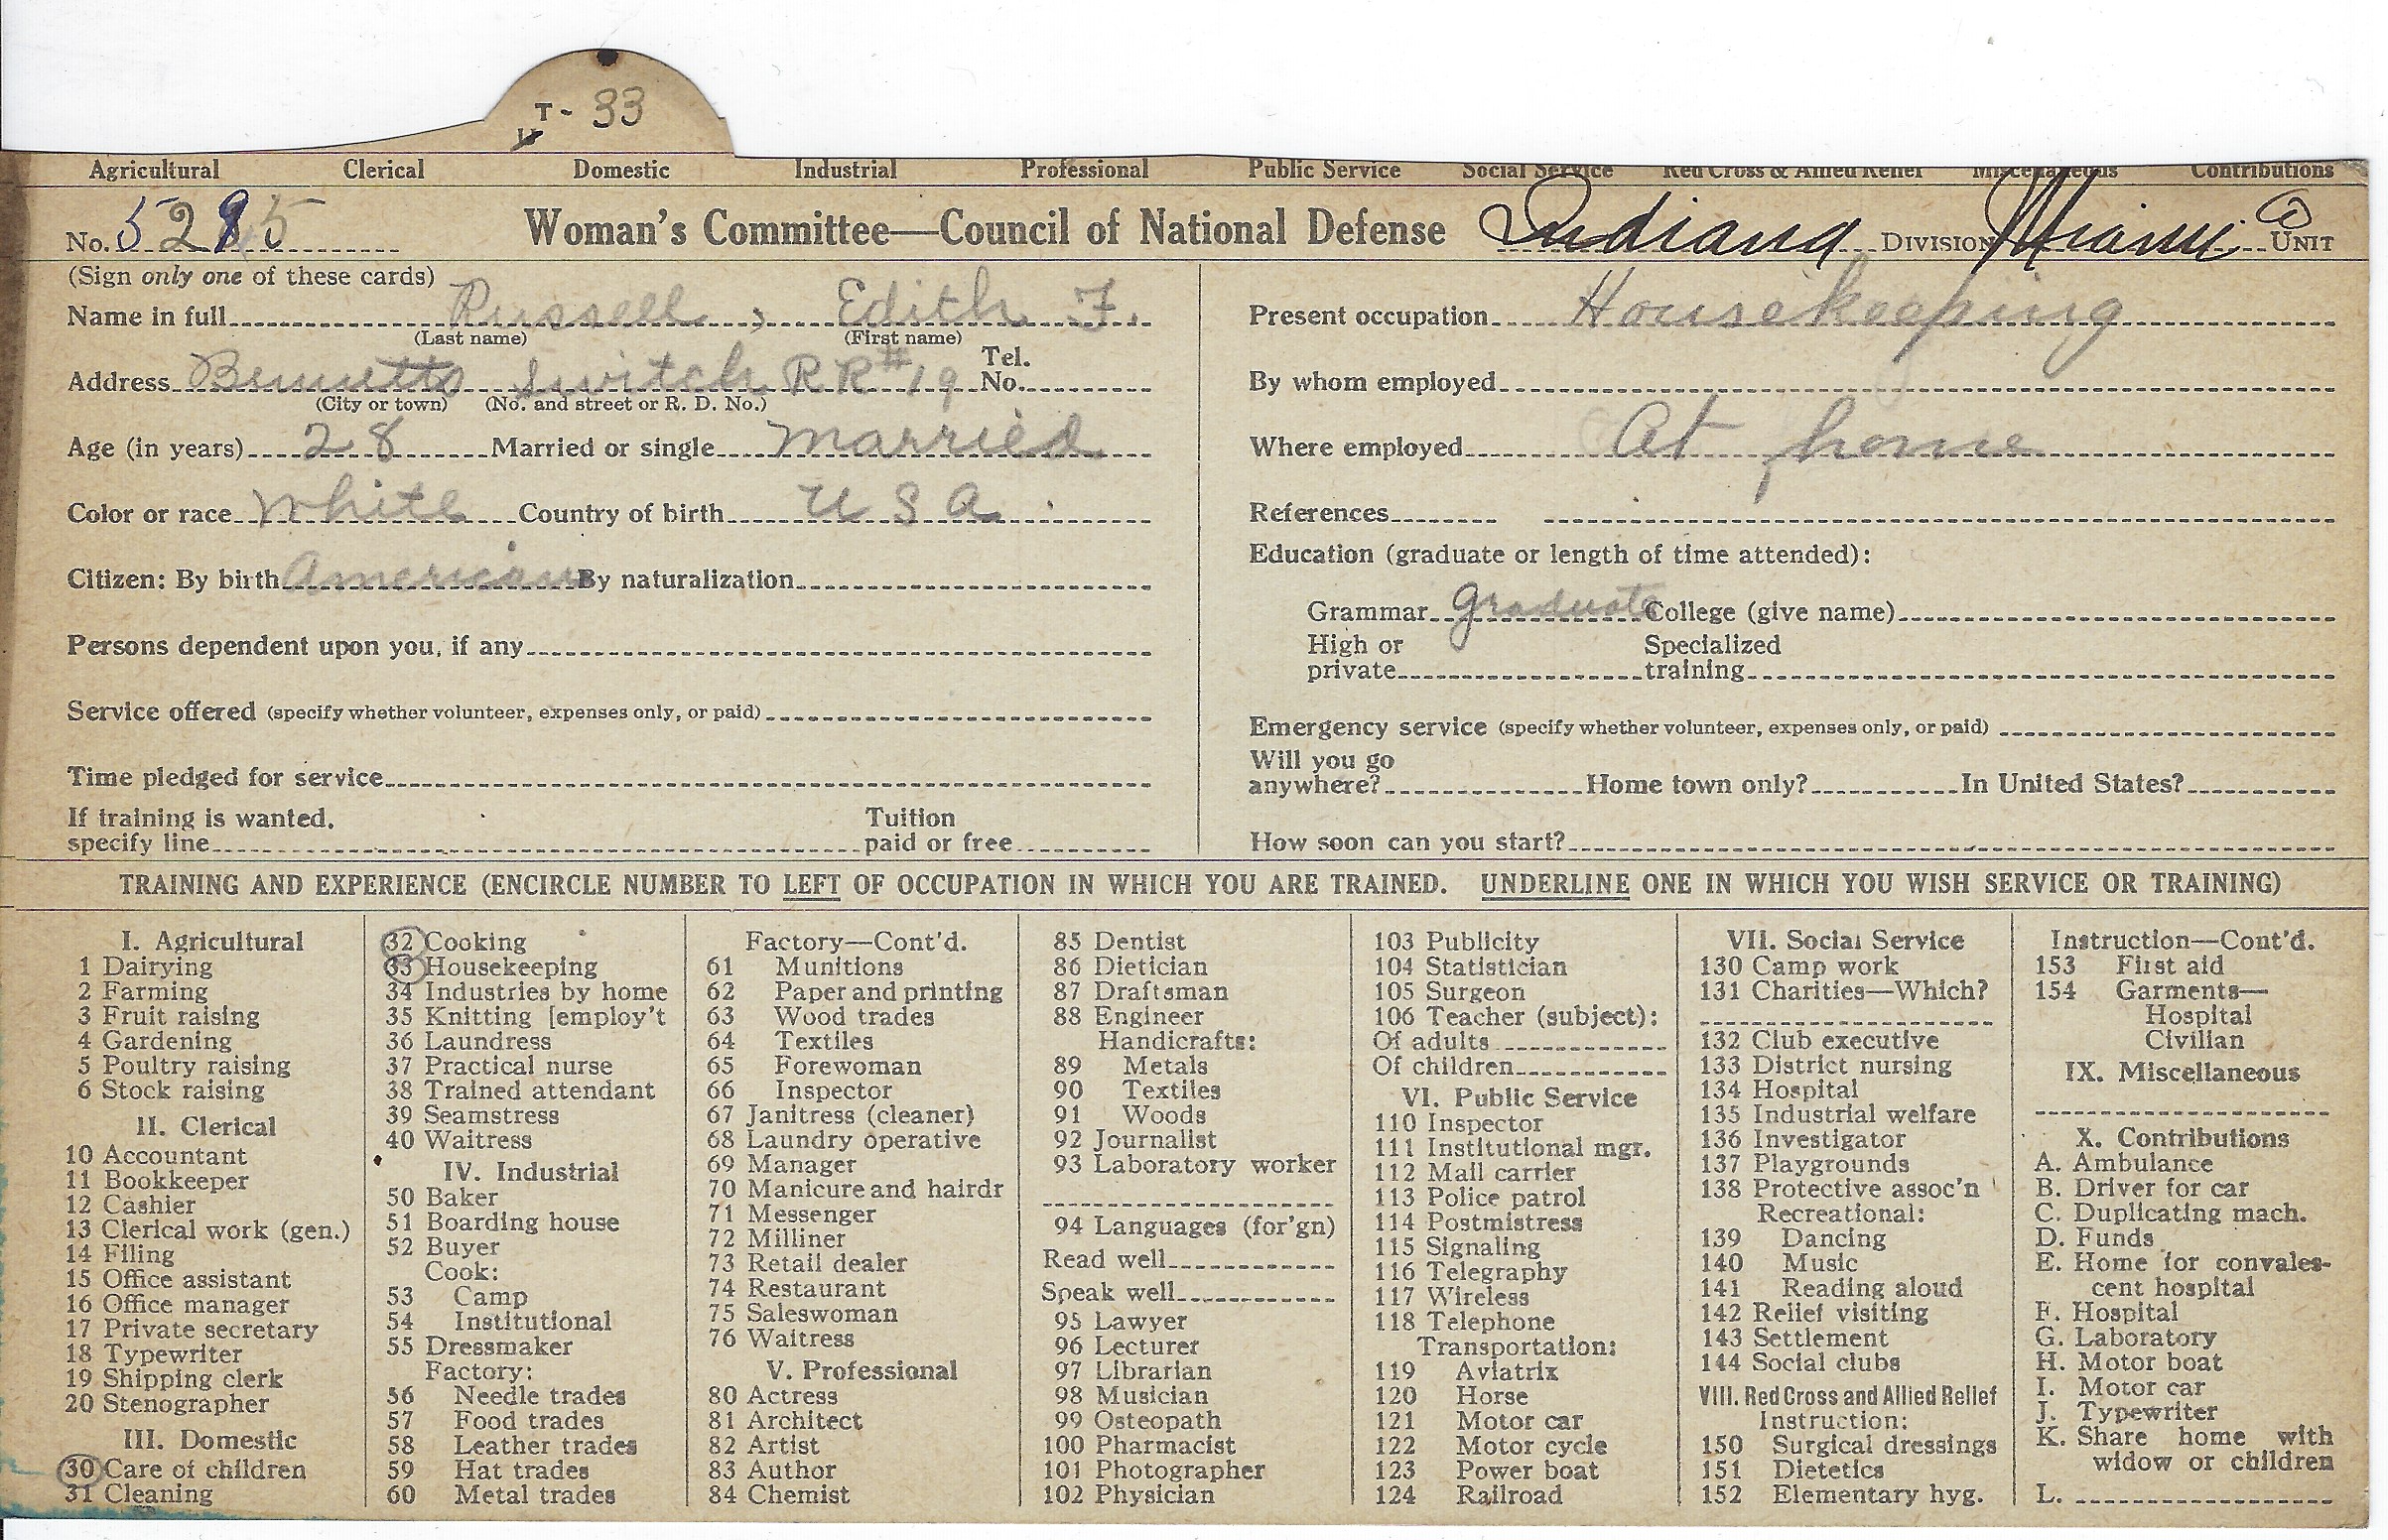 T- 33
Agricultural Clerical Domestic Industrial Professional Public Service Social Service Red Cross & Allied Relief Miscellaneous Contributions
No. 5295 Woman's Committee—Council of National Defense Indiana DIVISION Miami UNIT
(Sign only one of these cards)
Name in full Russell, Edith F.
(Last name) (First name)
Address Bennetts Switch RR#19 Tel. No.
(City or town) (No. and street or R. D. No.)
Age (in years) 28 Married or single married
Color or race White Country of birth U S A
Citizen: By birth American By naturalization
Persons dependent upon you, if any
Service offered (specify whether volunteer, expenses only, or paid)
Time pledged for service
If training is wanted, specify line Tuition paid or free
Present occupation Housekeeping
By whom employed
Where employed At home
References
Education (graduate or length of time attended):
Grammar graduate College (give name)
High or private Specialized training
Emergency service (specify whether volunteer, expenses only, or paid)
Will you go anywhere? Home town only? In United States?
How soon can you start?
TRAINING AND EXPERIENCE (ENCIRCLE NUMBER TO LEFT OF OCCUPATION IN WHICH YOU ARE TRAINED. UNDERLINE ONE IN WHICH YOU WISH SERVICE OR TRAINING)
I. Agricultural
1 Dairying
2 Farming
3 Fruit raising
4 Gardening
5 Poultry raising
6 Stock raising
II. Clerical
10 Accountant
11 Bookkeeper
12 Cashier
13 Clerical work (gen.)
14 Filing
15 Office assistant
16 Office manager
17 Private secretary
18 Typewriter
19 Shipping clerk
20 Stenographer
III. Domestic
30 Care of children
31 Cleaning
32 Cooking
33 Housekeeping
34 Industries by home
35 Knitting [employ't
36 Laundress
37 Practical nurse
38 Trained attendant
39 Seamstress
40 Waitress
IV. Industrial
50 Baker
51 Boarding house
52 Buyer
Cook:
53 Camp
54 Institutional
55 Dressmaker
Factory:
56 Needle trades
57 Food trades
58 Leather trades
59 Hat trades
60 Metal trades
Factory—Cont'd.
61 Munitions
62 Paper and printing
63 Wood trades
64 Textiles
65 Forewoman
66 Inspector
67 Janitress (cleaner)
68 Laundry operative
69 Manager
70 Manicure and hairdr
71 Messenger
72 Milliner
73 Retail dealer
74 Restaurant
75 Saleswoman
76 Waitress
V. Professional
80 Actress
81 Architect
82 Artist
83 Author
84 Chemist
85 Dentist
86 Dietician
87 Draftsman
88 Engineer
Handicrafts:
89 Metals
90 Textiles
91 Woods
92 Journalist
93 Laboratory worker
94 Languages (for'gn)
Read well
Speak well
95 Lawyer
96 Lecturer
97 Librarian
98 Musician
99 Osteopath
100 Pharmacist
101 Photographer
102 Physician
103 Publicity
104 Statistician
105 Surgeon
106 Teacher (subject):
Of adults
Of children
VI. Public Service
110 Inspector
111 Institutional mgr.
112 Mail carrier
113 Police patrol
114 Postmistress
115 Signaling
116 Telegraphy
117 Wireless
118 Telephone
Transportation:
119 Aviatrix
120 Horse
121 Motor car
122 Motor cycle
123 Power boat
124 Railroad
VII. Social Service
130 Camp work
131 Charities—Which?
132 Club executive
133 District nursing
134 Hospital
135 Industrial welfare
136 Investigator
137 Playgrounds
138 Protective assoc'n
Recreational:
139 Dancing
140 Music
141 Reading aloud
142 Relief visiting
143 Settlement
144 Social clubs
VIII. Red Cross and Allied Relief
Instruction:
150 Surgical dressings
151 Dietetics
152 Elementary hyg.
Instruction—Cont'd.
153 First aid
154 Garments—
Hospital
Civilian
IX. Miscellaneous
X. Contributions
A. Ambulance
B. Driver for car
C. Duplicating mach.
D. Funds
E. Home for convales-
cent hospital
F. Hospital
G. Laboratory
H. Motor boat
I. Motor car
J. Typewriter
K. Share home with
widow or children
L.